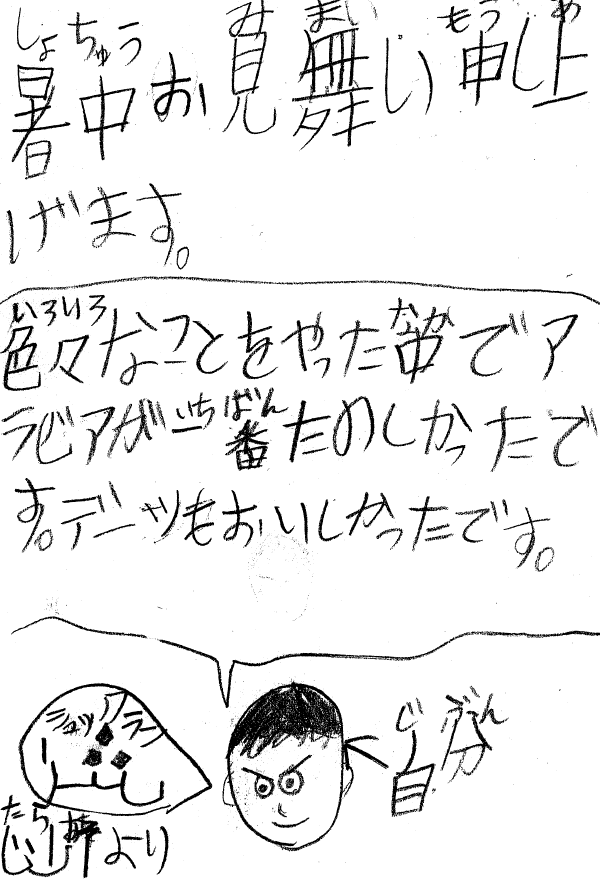 しょちゅう み まい もう あ
暑中お見舞い申し上
げます。
いろいろ なか
色々なことをやった中でア
いち ばん
ラビアが一番たのしかったで
す。デーツもおいしかったです。
シュックラン
じ ぶん
自分
より